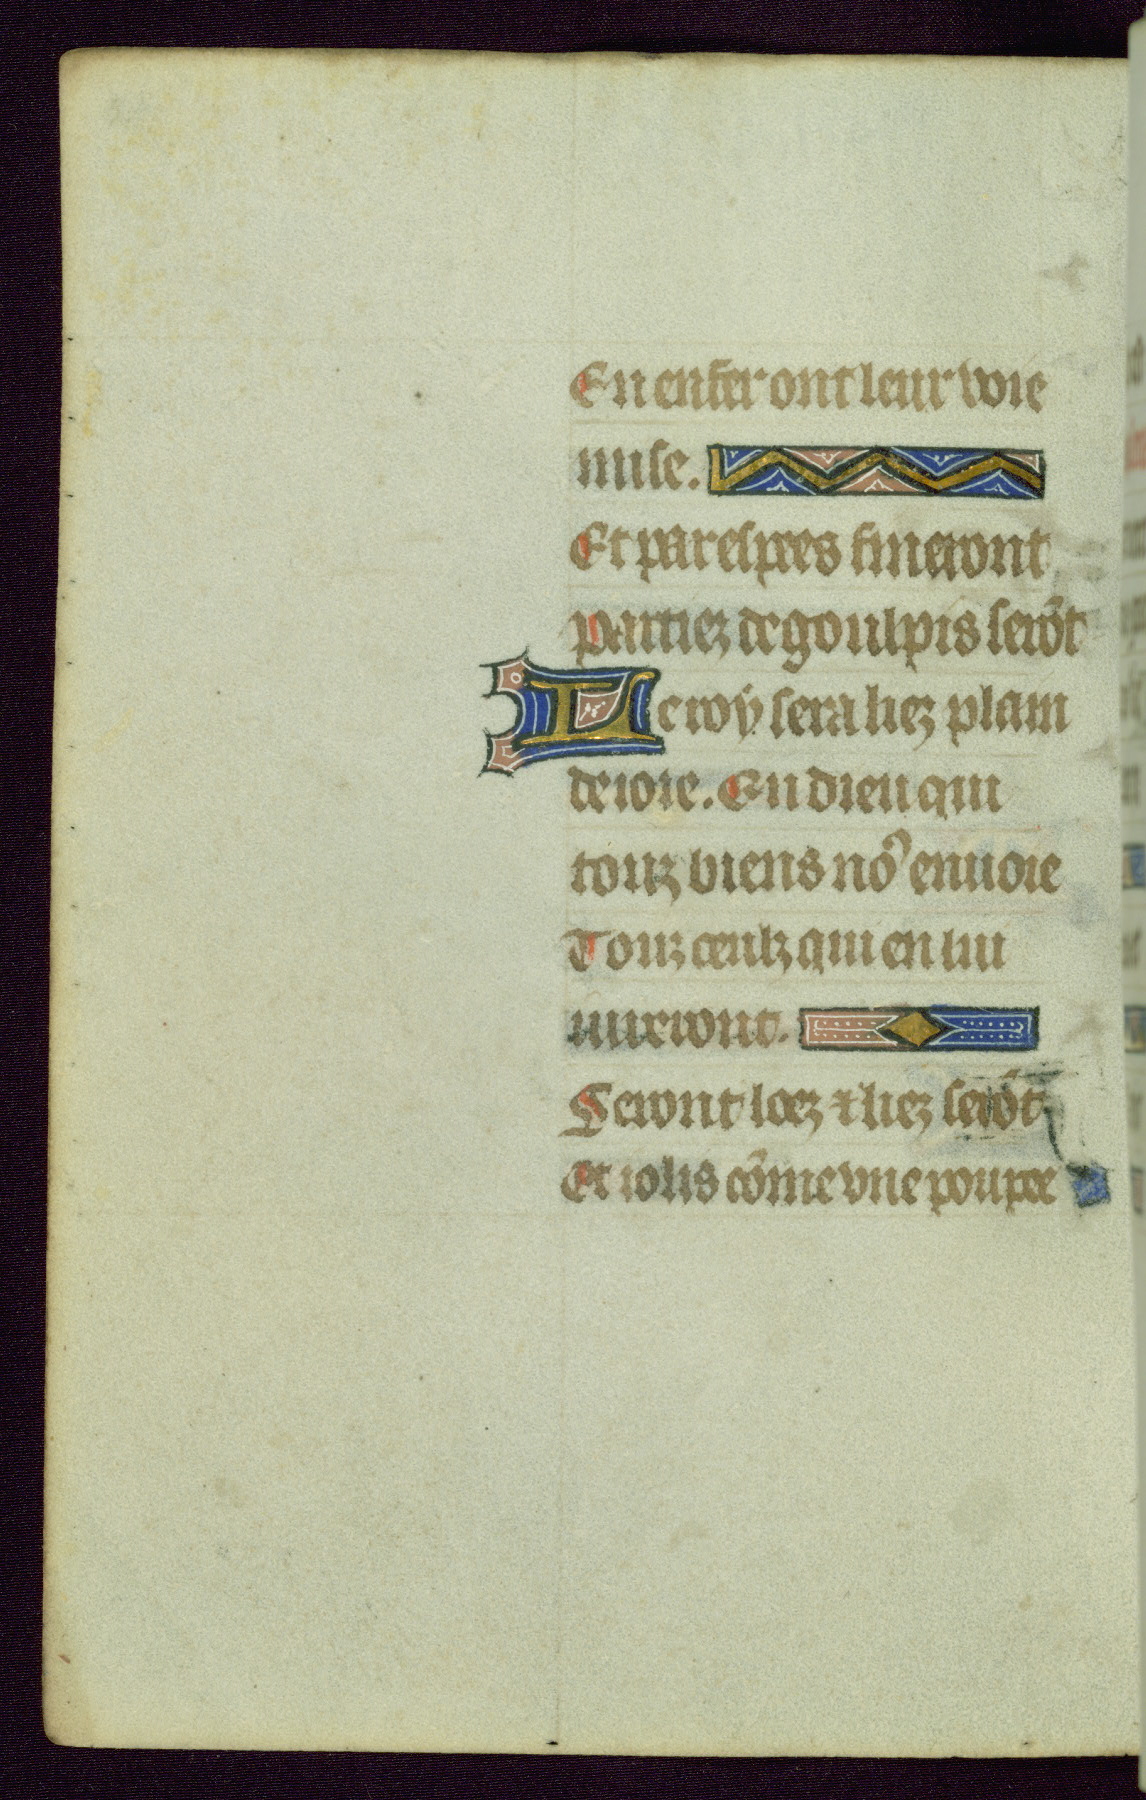 En enfer ont leur voie
mise.
Et par espees fineront
Partiez de goulpis serõt
Le roy sera liez plain
de ioie. En dieu qui
touz biens no9 enuoie
Touz ceulz qui en lui
iureront.
Seront loez ⁊ liez serõt
Et iolis cõme vne poupee